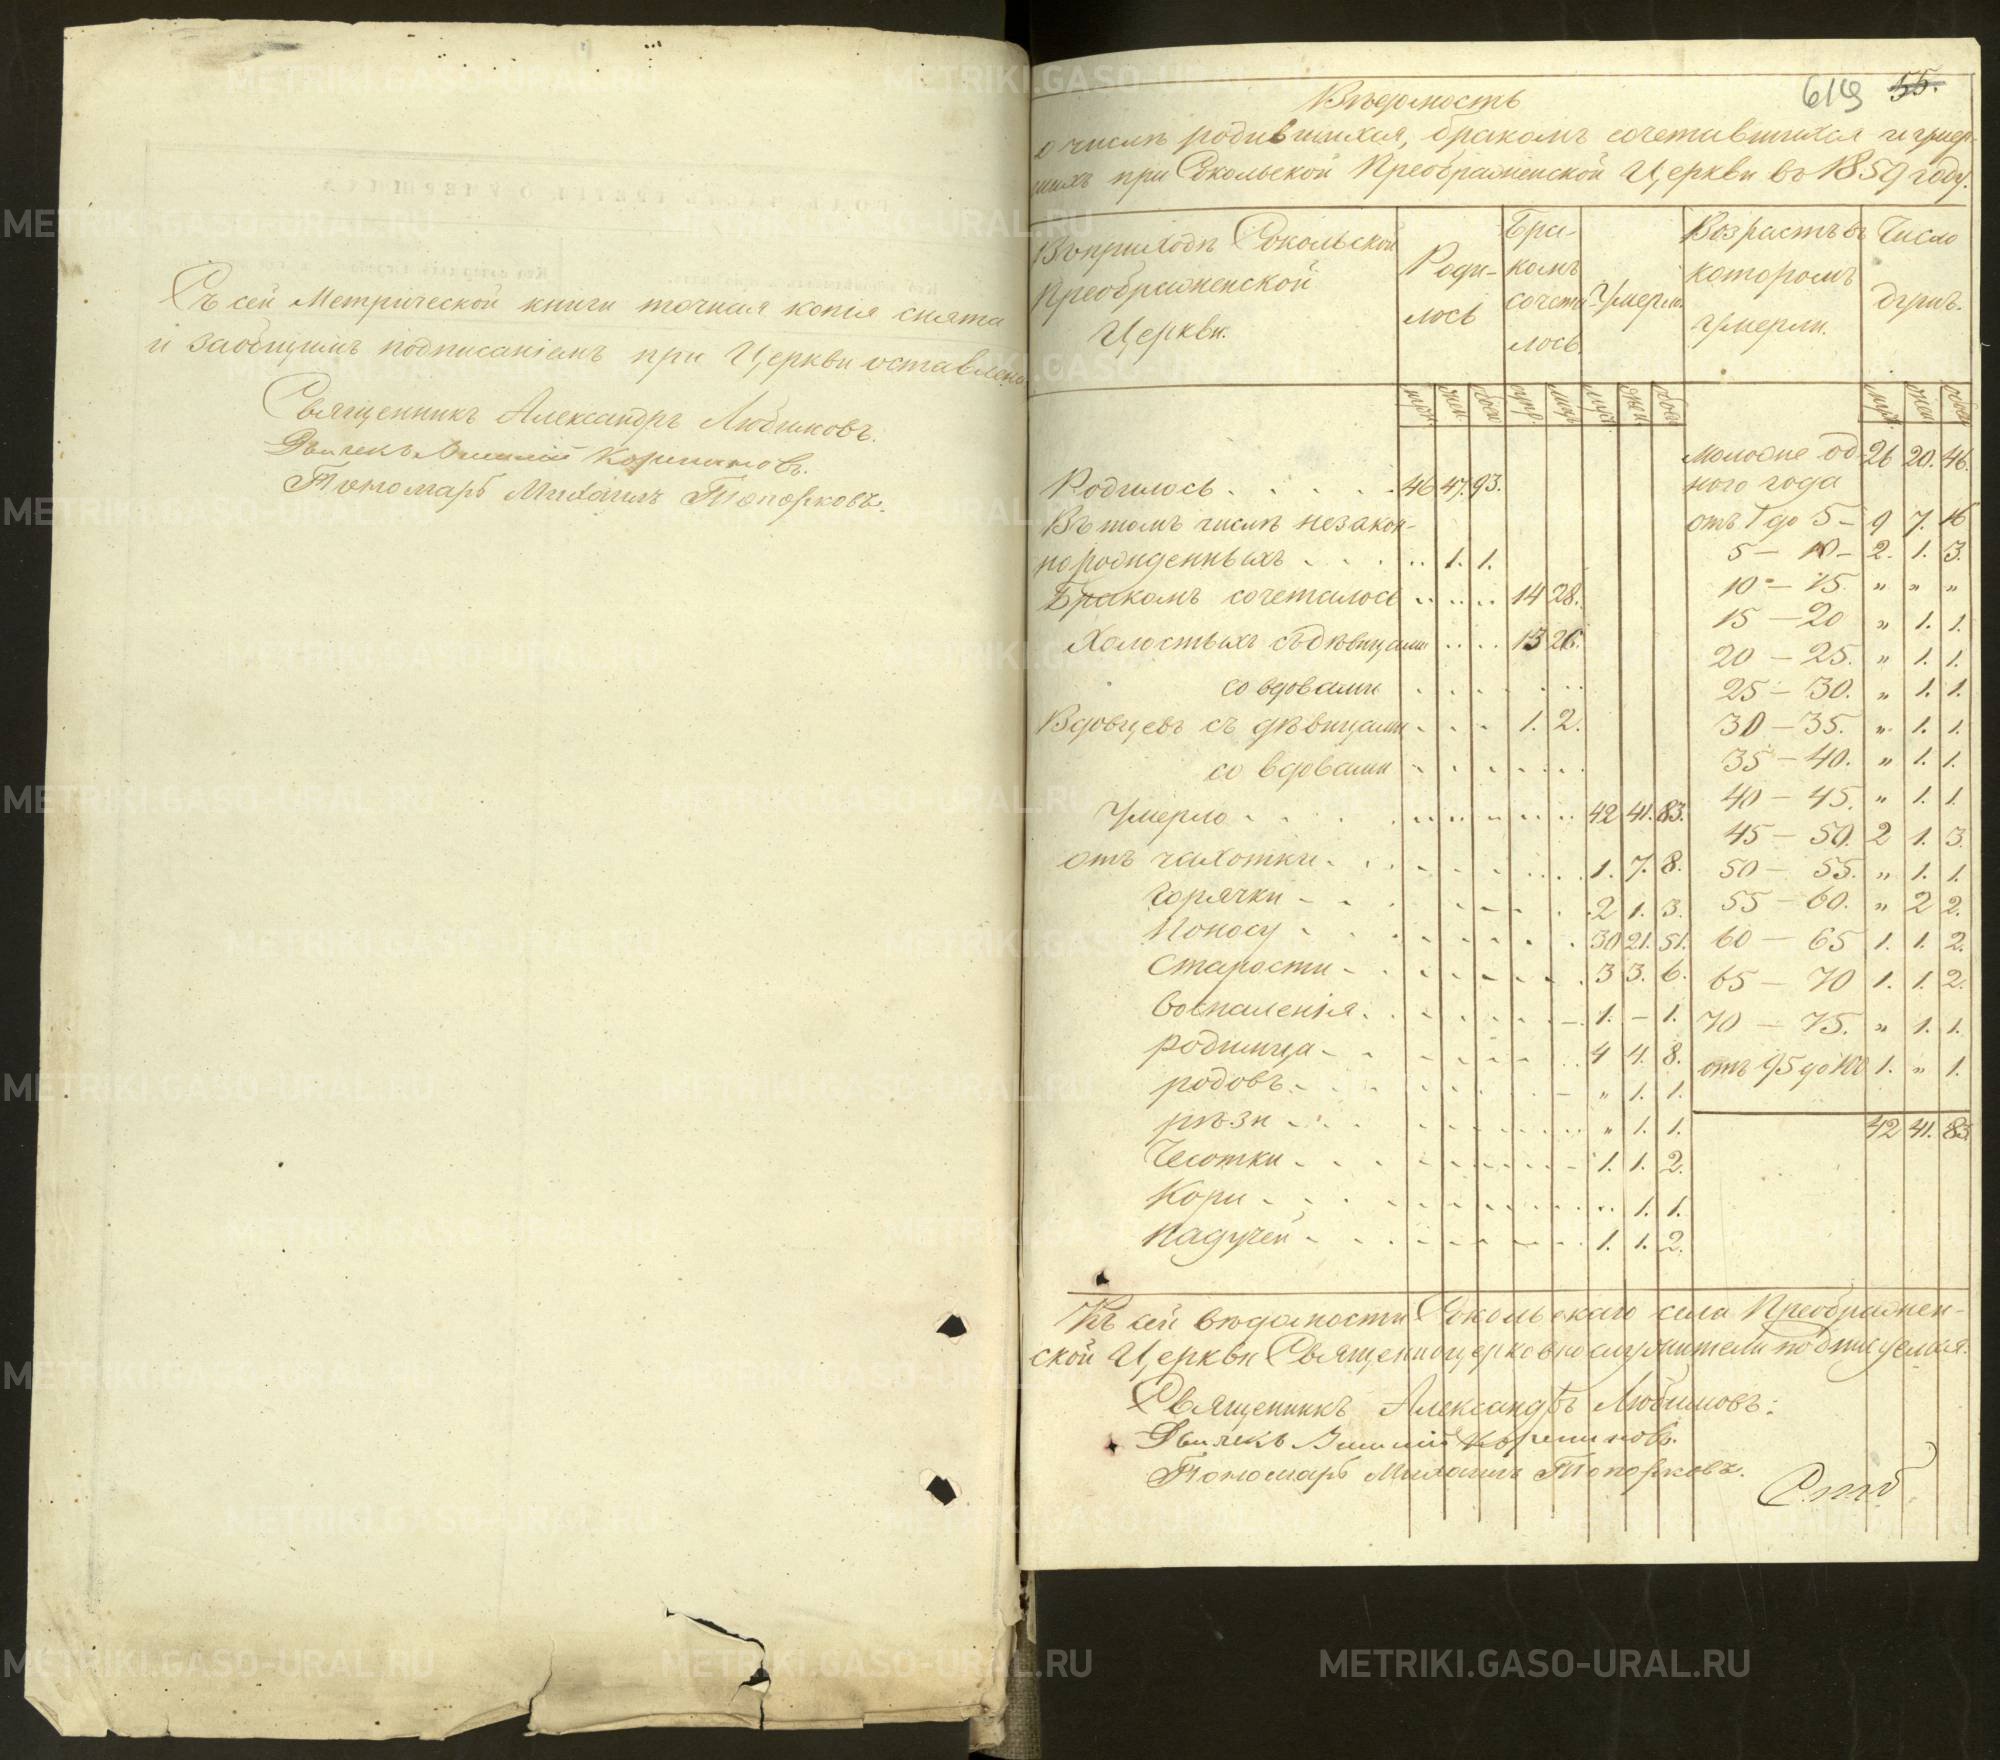 Съ сей Метрической книги точная копія снята
и заобщимъ подписаніемъ при Церкви оставлена
Священникъ Александръ Любимовъ.
Дьячекъ
Пономарь Михаилъ Топорковъ.
619 55.
Вѣдомость
о числѣ родившихся, бракомъ сочетавшихся и умер-
шихъ при Сокольской Преображенской Церкви въ 1859 году.
Въ приходѣ Сокольской
Преображенской
Церкви.
Роди-
лось
Бра-
комъ
сочета
лось.
Умерли.
Возрастъ въ
которомъ
умерли.
Число
душъ.
муж. жен. обое. супр. лицъ муж. жен. обое муж. жен. обое
Родилось . . . . . 46 47. 93.
Въ томъ числѣ незакон-
норожденныхъ . . . . . 1. 1.
Бракомъ сочеталось . . . . . 14 28.
Холостыхъ съ дѣвицами . . . . 13 26.
со вдовами . . . . . .
Вдовцевъ съ дѣвицами . . . 1. 2.
со вдовами . . . . . .
Умерло . . . . . 42 41. 83.
отъ чахотки . . . . . 1. 7. 8.
горячки . . . . . 2 1. 3.
Поносу . . . . . 30 21. 51.
Старости . . . . . 3 3. 6.
воспаленія . . . . . 1. – 1.
родимца . . . . . 4 4. 8.
родовъ . . . . . „ 1. 1.
рѣзи . . . . . „ 1. 1.
Чесотки . . . . . 1. 1. 2.
Кори . . . . . 1. 1.
Падучей . . . . . 1. 1. 2.
моложе од- 26 20. 46.
ного года
отъ 1 до 5 – 9 7. 16
5 – 10 – 2. 1. 3.
10 – 15. „ „ „
15 – 20 „ 1. 1.
20 – 25. „ 1. 1.
25 – 30. „ 1. 1.
30 – 35. „ 1. 1.
35 – 40. „ 1. 1.
40 – 45. „ 1. 1.
45 – 50. 2 1. 3.
50 – 55. „ 1. 1.
55 – 60. „ 2 2.
60 – 65 1. 1. 2.
65 – 70 1. 1. 2.
70 – 75. „ 1. 1.
отъ 95 до 100 1. „ 1.
42 41. 83
Къ сей вѣдомости Сокольскаго села Преображен-
ской Церкви Священноцерковнослужители подписуемся.
Священникъ Александръ Любимовъ.
Дьячекъ
Пономарь Михаилъ Топорковъ.
METRIKI.GASO-URAL.RU